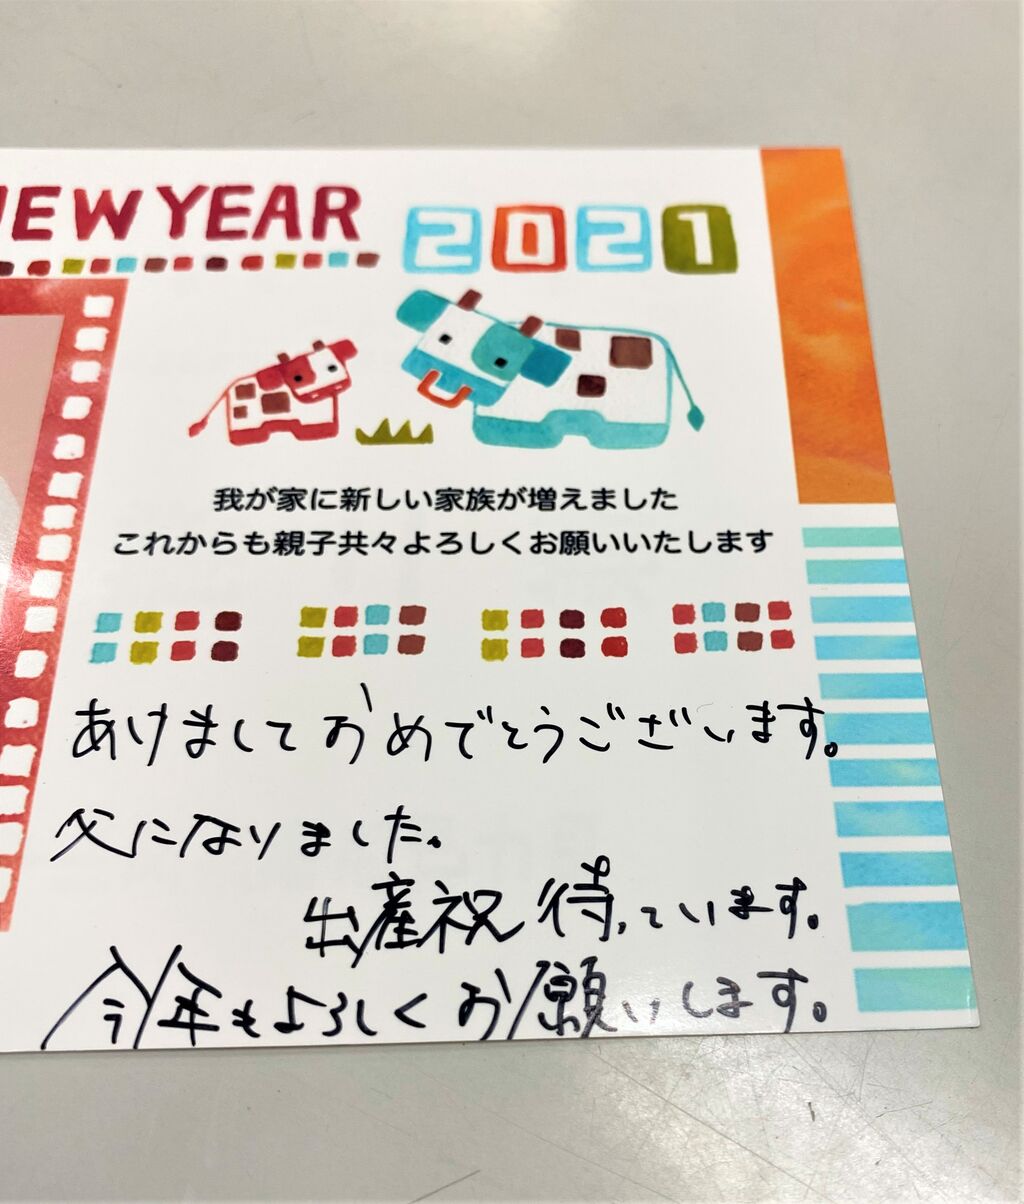 NEW YEAR 2021
我が家に新しい家族が増えました
これからも親子共々よろしくお願いいたします
あけましておめでとうございます。
父になりました。
出産祝待っています。
今年もよろしくお願いします。